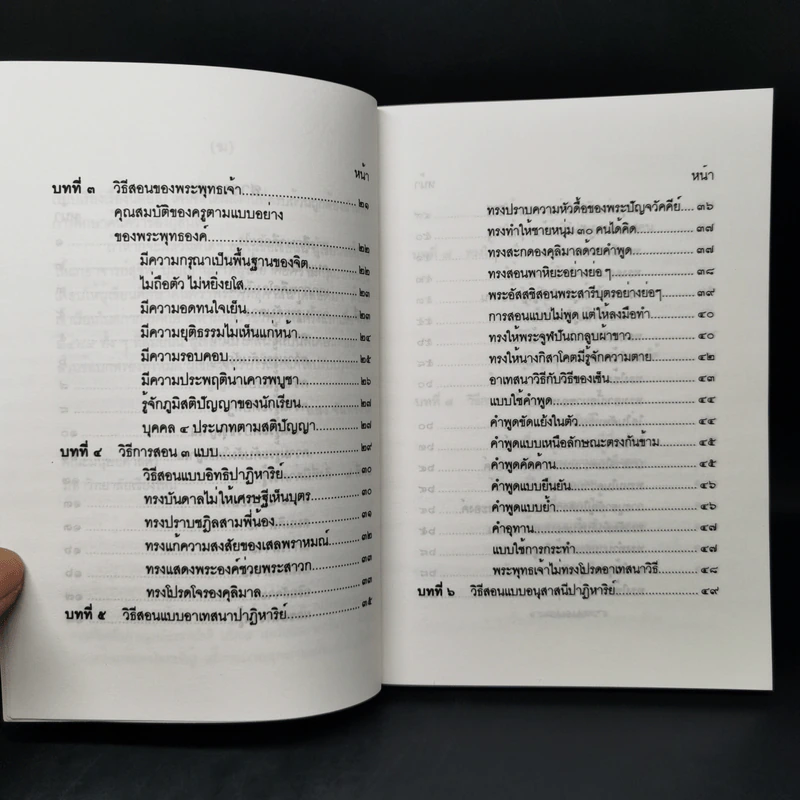 หน้า
บทที่ ๓ วิธีสอนของพระพุทธเจ้า ๒๑
คุณสมบัติของครูตามแบบอย่าง
ของพระพุทธองค์ ๒๒
มีความกรุณาเป็นพื้นฐานของจิต ๒๒
ไม่ถือตัว ไม่หยิ่งยโส ๒๓
มีความอดทนใจเย็น ๒๓
มีความยุติธรรมไม่เห็นแก่หน้า ๒๔
มีความรอบคอบ ๒๕
มีความประพฤติน่าเคารพบูชา ๒๖
รู้จักภูมิสติปัญญาของนักเรียน ๒๗
บุคคล ๔ ประเภทตามสติปัญญา ๒๗
บทที่ ๔ วิธีการสอน ๓ แบบ ๒๙
วิธีสอนแบบอิทธิปาฏิหาริย์ ๓๐
ทรงบันดาลไม่ให้เศรษฐีเห็นบุตร ๓๐
ทรงปราบชฎิลสามพี่น้อง ๓๑
ทรงแก้ความสงสัยของเสลพราหมณ์ ๓๒
ทรงแสดงพระองค์ช่วยพระสาวก ๓๓
ทรงโปรดโจรองคุลิมาล ๓๓
บทที่ ๕ วิธีสอนแบบอาเทสนาปาฏิหาริย์ ๓๕
หน้า
ทรงปราบความหัวดื้อของพระปัญจวัคคีย์ ๓๖
ทรงทำให้ชายหนุ่ม ๓๐ คนได้คิด ๓๗
ทรงสะกดองคุลิมาลด้วยคำพูด ๓๗
ทรงสอนพาหิยะอย่างย่อๆ ๓๘
พระอัสสชิสอนพระสารีบุตรอย่างย่อๆ ๓๙
การสอนแบบไม่พูด แต่ให้ลงมือทำ ๔๐
ทรงให้พระจูฬปันถกลูบผ้าขาว ๔๐
ทรงให้นางกิสาโคตมีรู้จักความตาย ๔๒
อาเทสนาวิธีกับวิธีของเซ็น ๔๓
แบบใช้คำพูด ๔๔
คำพูดขัดแย้งในตัว ๔๔
คำพูดแบบเหนือลักษณะตรงกันข้าม ๔๕
คำพูดคัดค้าน ๔๕
คำพูดแบบยืนยัน ๔๖
คำพูดแบบย้ำ ๔๖
คำอุทาน ๔๗
แบบใช้การกระทำ ๔๗
พระพุทธเจ้าไม่ทรงโปรดอาเทสนาวิธี ๔๘
บทที่ ๖ วิธีสอนแบบอนุสาสนีปาฏิหาริย์ ๔๙